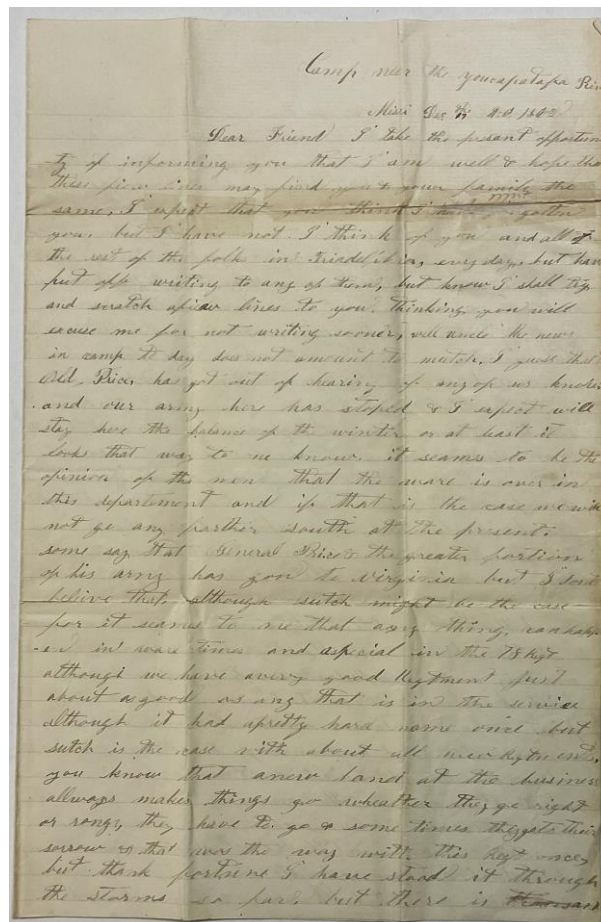 Camp near the youcapatapa Riv
Missi Dec 11th A.D. 1862
Dear Friend I take the presant opportun
ty of informing you that I am well & hope tha
these fiew lines may find you & your family the
same, I expect that you think I have
you, but I have not. I think of you and all of
the rest of the folks in Triadelphia, every day, but have
put off writing to any of them, but know I shall try
and scratch afiew lines to you. thinking you will
excuse me for not writing sooner, well uncle the news
in camp to day does not amount to mutch, I guess that
Old Price, has got out of hearing of any of us know.
and our army here has stoped & I expect will
stay here the balance of the winter or at least it
looks that way to me know. it seames to be the
opinion of the men that the ware is over in
this departement and if that is the case we will
not go any farther south at the present.
some say that General Price & the greater portion
of his army has gon to Virginia but I dont
belive that, although sutch might be the case
for it seames to me that any thing, can happ
en in ware times and aspecial in the 78 Regt
although we have avery good Regtment just
about agood as any that is in the service
although it had apretty hard name once but
sutch is the case with about all new Regtments,
you know that anew hand at the business
allways makes things go wheather they go right
or rong, they have to go & some times they gets their
sorrow & that was the way with this Regt once,
but thank fortune I have stood it through
the storms so far, but there is thousan